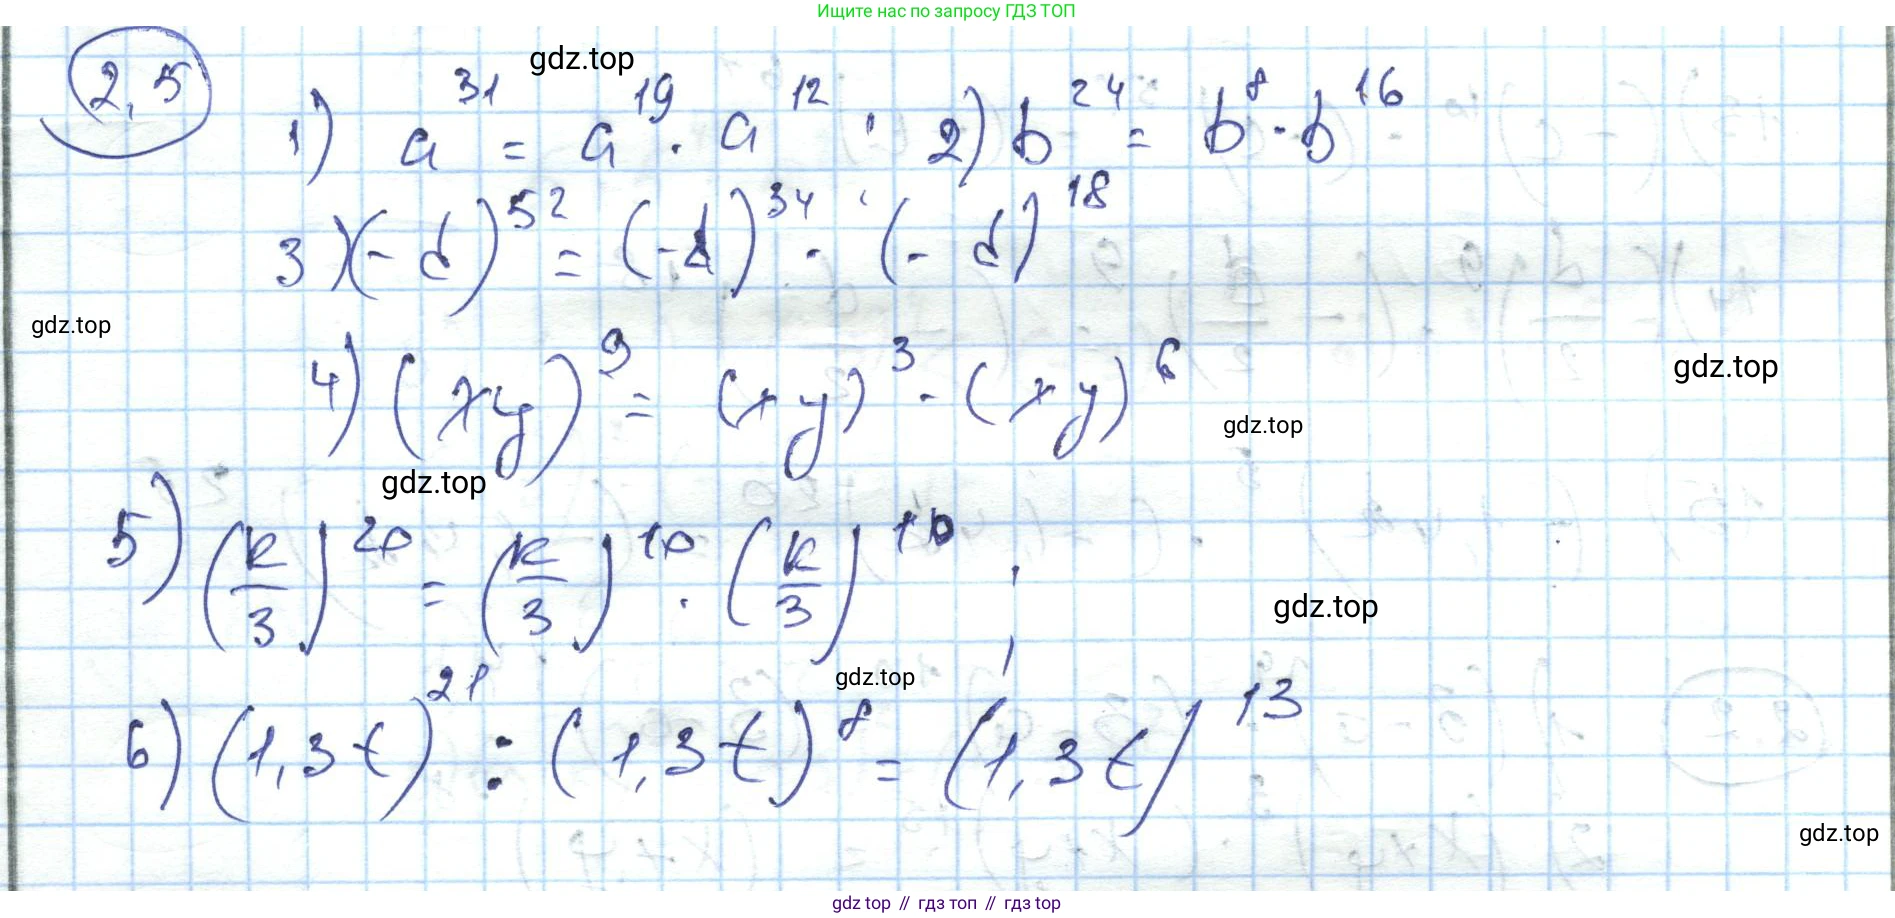 Ищите нас по запросу ГДЗ ТОП
2,5
gdz.top
1) a^31 = a^19 · a^12 ; 2) b^24 = b^8 · b^16
3) (-d)^52 = (-d)^34 · (-d)^18
gdz.top
4) (xy)^9 = (xy)^3 · (xy)^6
gdz.top
gdz.top
gdz.top
5) (k/3)^20 = (k/3)^10 · (k/3)^10 ;
gdz.top
gdz.top
6) (1,3t)^21 : (1,3t)^8 = (1,3t)^13
gdz.top
gdz top // гдз топ // gdz top